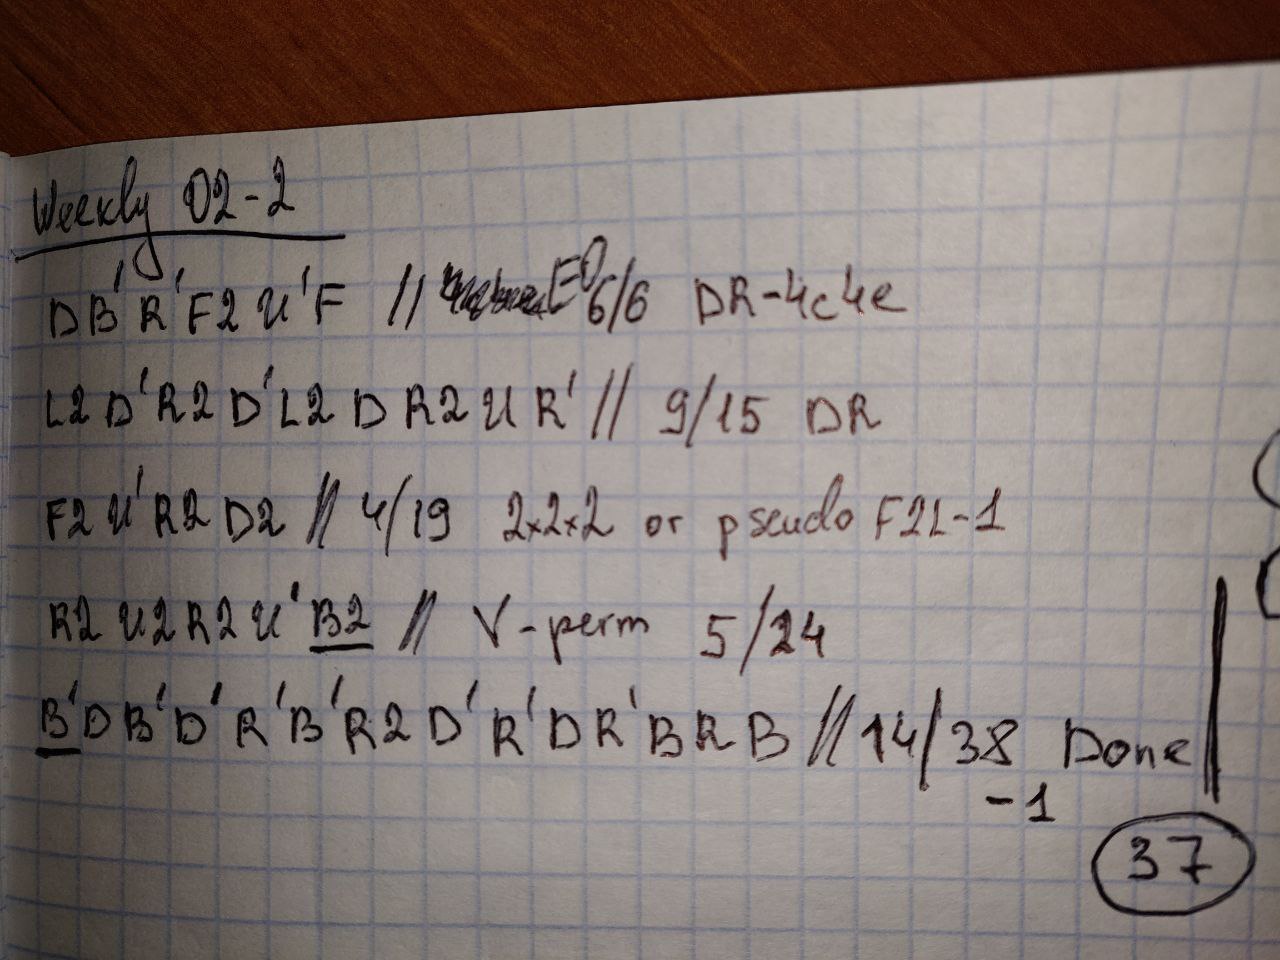 Weekly 02-2
D B' R' F2 U' F // EO 6/6 DR-4c4e
L2 D' R2 D' L2 D R2 U R' // 9/15 DR
F2 U' R2 D2 // 4/19 2x2x2 or pseudo F2L-1
R2 U2 R2 U' B2 // V-perm 5/24
B' D B' D' R' B' R2 D' R' D R' B R B // 14/38 Done
-1
37